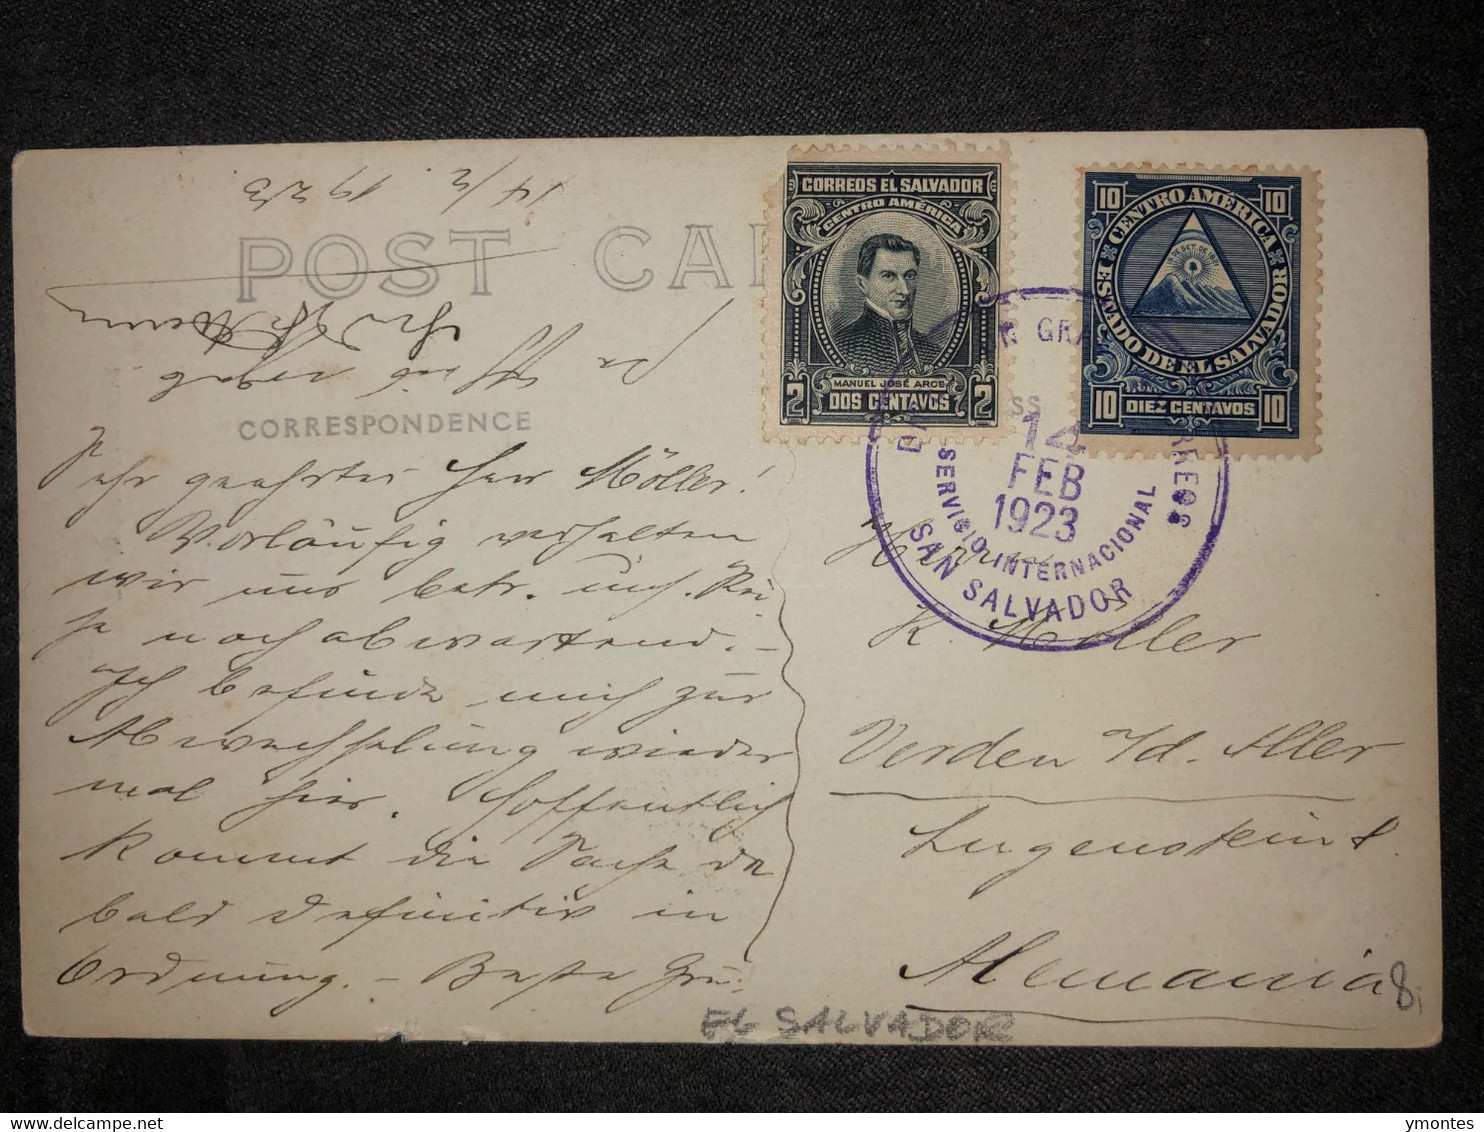 14/2. 1923
POST CA
CORRESPONDENCE
Sehr geehrter Herr Möller!
Vorläufig verhalten
wir uns betr. uns. Rei-
se noch abwartend. –
Ich befinde mich zur
Abwechselung wieder
mal hier. Hoffentlich
kommt die Sache da
bald definitiv in
Ordnung. – Beste Grü-
CORREOS EL SALVADOR
CENTRO AMÉRICA
MANUEL JOSÉ ARCE
2 DOS CENTAVOS 2
10 10
CENTRO AMÉRICA
ESTADO DE EL SALVADOR
10 DIEZ CENTAVOS 10
SS
14
FEB
1923
SERVICIO INTERNACIONAL
SAN SALVADOR
Herrn
K. Möller
Verden a/d. Aller
Lugensteinst.
Alemania
8.
EL SALVADOR
delcampe.net
ymontes